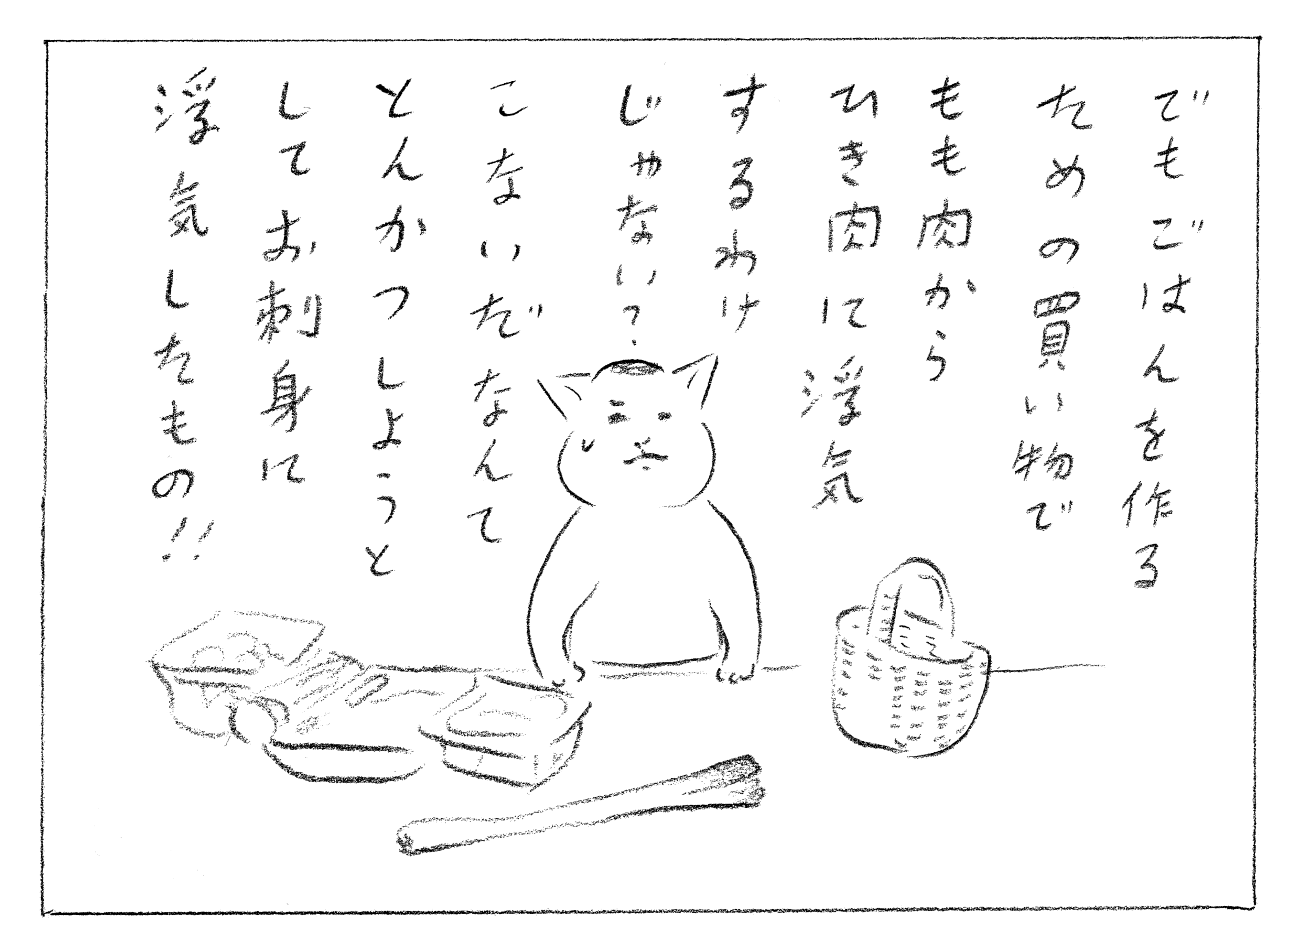 でもごはんを作る
ための買い物で
もも肉から
ひき肉に浮気
するわけ
じゃない?
こないだなんて
とんかつしようと
してお刺身に
浮気したもの!!